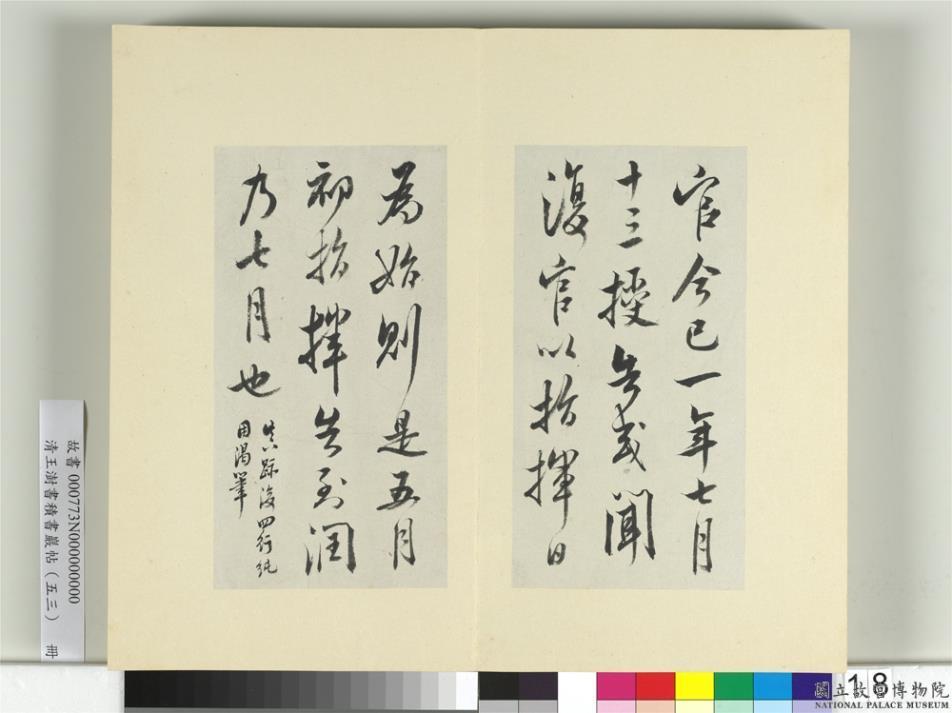 官今已一年七月
十三授告或聞
復官以指揮日
為始則是五月
初指揮告到潤
乃七月也
真跡後四行純
用渴筆
故書 000773N000000000
清王澍書積書巖帖（五三） 冊
18
國立故宮博物院
NATIONAL PALACE MUSEUM